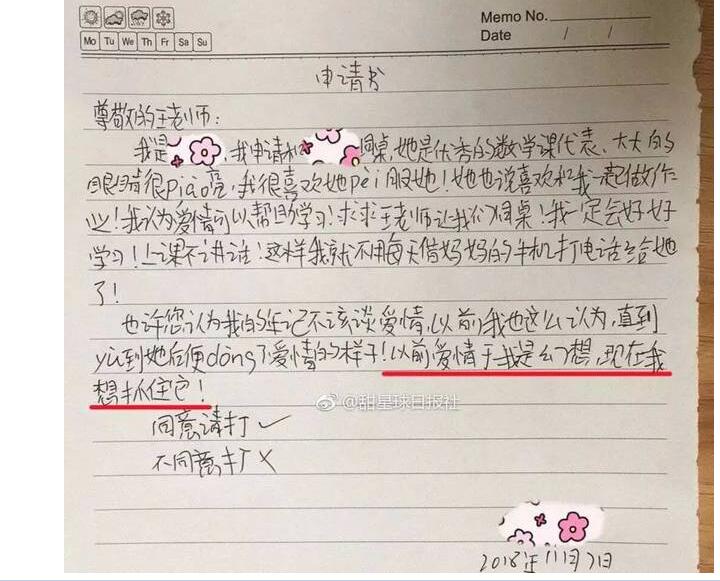 Memo No.
Mo Tu We Th Fr Sa Su
Date / /
申请书
尊敬的王老师：
我是，我申请和同桌，她是优秀的数学课代表、大大的
眼睛很piāo亮，我很喜欢她pèi服她！她也说喜欢和我一起做作
业！我认为爱情可以帮助学习！求求王老师让我们同桌！我一定会好好
学习！上课不讲话！这样我就不用每天借妈妈的手机打电话给她
了！
也许您认为我的年记不该谈爱情，以前我也这么认为，直到
yù到她后便dǒng了爱情的样子！以前爱情于我是幻想，现在我
想抓住它！
@甜星球日报社
同意请打✓
不同意打×
2018年11月7日